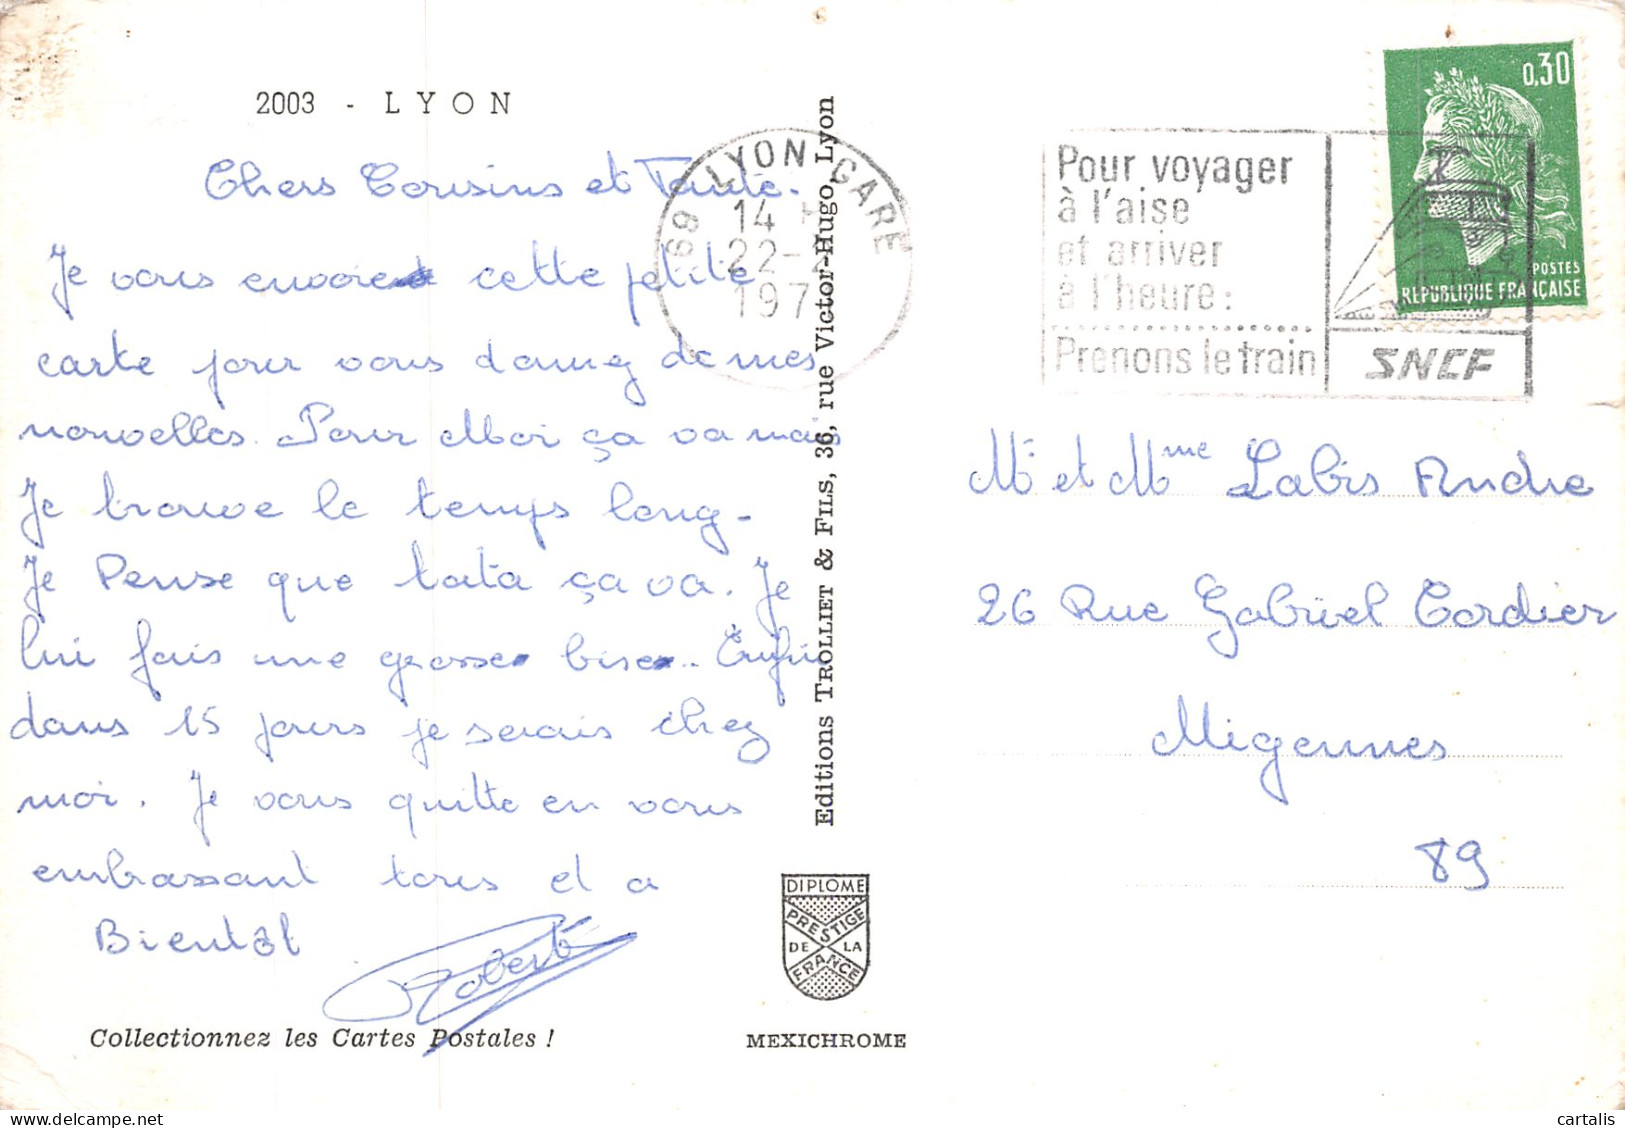 2003 - LYON
Chers Cousins et Tante.
Je vous envoie cette petite
carte pour vous donnez de mes
nouvelles. Pour Moi ça va mais
Je trouve le temps long -
Je Pense que tata ça va. Je
lui fais une grosse bise.. Enfin
dans 15 jours je serais chez
moi. Je vous quitte en vous
embrassant tous et a
Bientôt
Robert
Collectionnez les Cartes Postales !
Editions TROLLET & FILS, 36, rue Victor-Hugo, Lyon
DIPLOME
PRESTIGE
DE LA
FRANCE
MEXICHROME
69 LYON-GARE
14 H
22-
197
Pour voyager
à l'aise
et arriver
à l'heure :
Prenons le train
SNCF
0,30
POSTES
REPUBLIQUE FRANÇAISE
Mr et Mme Labis Andre
26 Rue Gabriel Cordier
Migennes
89
cartalis